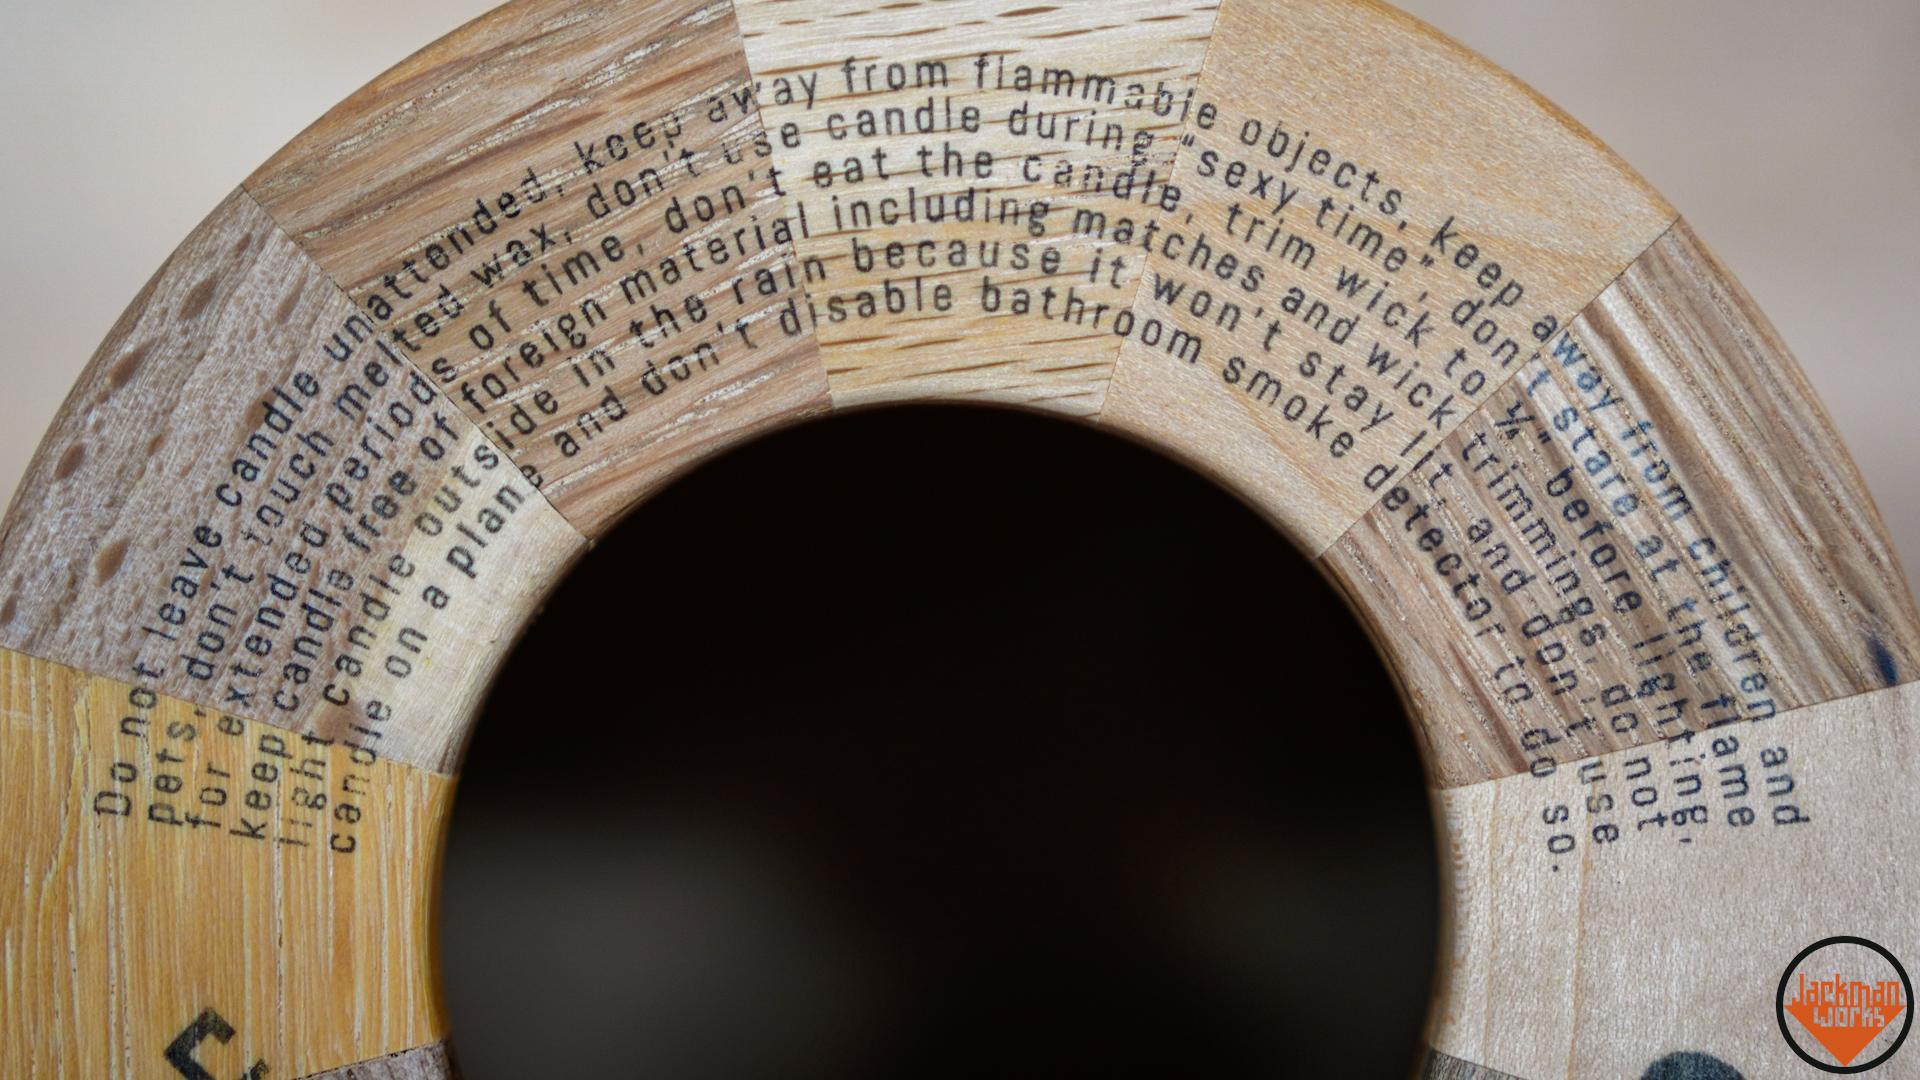 Do not leave candle unattended, keep away from flammable objects, keep away from children and
pets, don't touch melted wax, don't use candle during "sexy time", don't stare at the flame
for extended periods of time, don't eat the candle, trim wick to ¼" before lighting,
keep candle free of foreign material including matches and wick trimmings, do not
light candle outside in the rain because it won't stay lit, and don't use
candle on a plane and don't disable bathroom smoke detector to do so.
Jackman
works